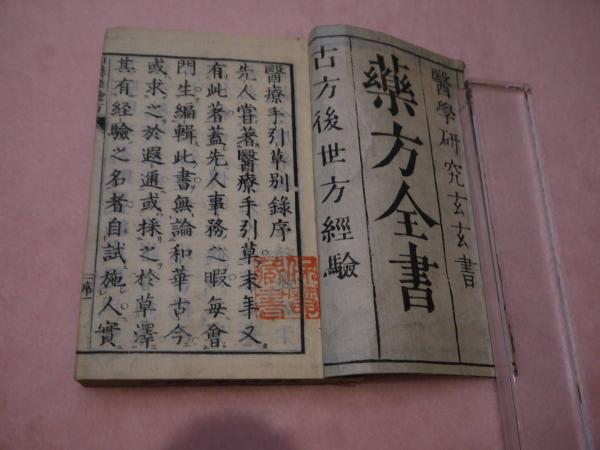 醫學研究玄玄書
藥方全書
古方後世方經驗
醫療手引草別錄序
先人嘗著醫療手引草末年又
有此著蓋先人事務之暇每會
門生編輯此書無論和華古今
或求之於遐邇或採之於草澤
其有經驗之名者自試施人實
序